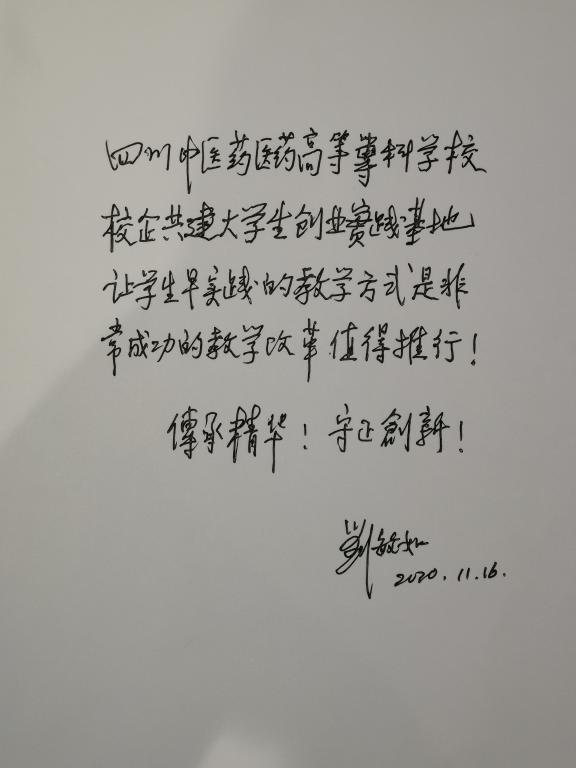 四川中医药医药高等専科学校
校企共建大学生创业實践基地
让学生早实践的教学方式是非
常成功的教学改革值得推行！
傳承精华！守正創新！
劉敏如
2020.11.16.